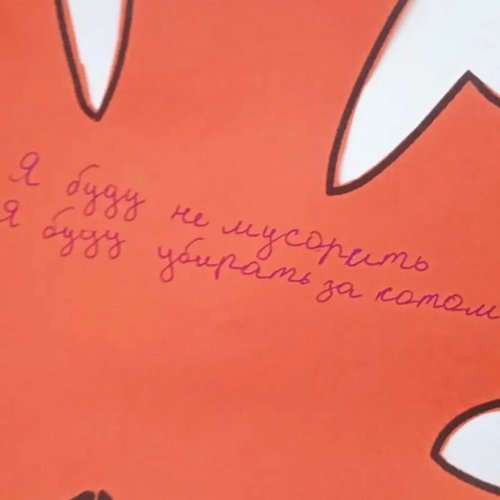 Я буду не мусорить
Я буду убирать за котом